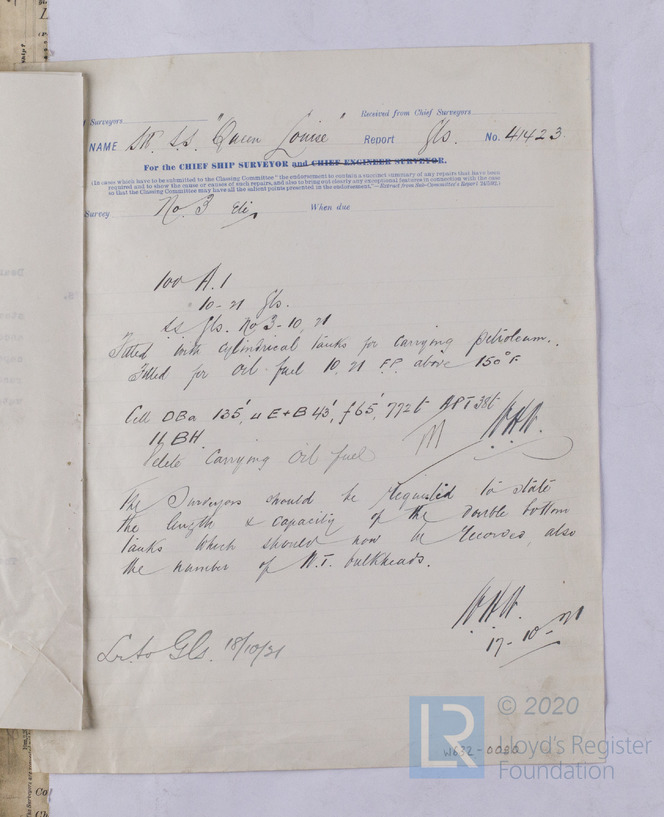 Surveyors
Received from Chief Surveyors
NAME SS. "Queen Louise" Report Gls. No. 41423
For the CHIEF SHIP SURVEYOR and CHIEF ENGINEER SURVEYOR.
(In cases which have to be submitted to the Classing Committee "the endorsement to contain a succinct summary of any repairs that have been
required and to show the cause or causes of such repairs, and also to bring out clearly any exceptional features in connection with the case
so that the Classing Committee may have all the salient points presented in the endorsement."—Extract from Sub-Committee's Report
Survey No 3 When due
100 A.1
10-21 Gls.
SS Gls. No 3-10,21
Fitted with cylindrical tanks for carrying petroleum.
Fitted for oil fuel 10,21 F.P. above 150°F
Cell DBa 135', u E+B 43', f 65', 772t APT 38t
11 BH
delete Carrying Oil fuel
The Surveyors should be requested to state
the length & capacity of the double bottom
tanks which should now be recorded, also
the number of W.T. bulkheads.
17-10-21
Lr. to Gls. 18/10/21
W632-0080
© 2020
LR
Lloyd's Register
Foundation